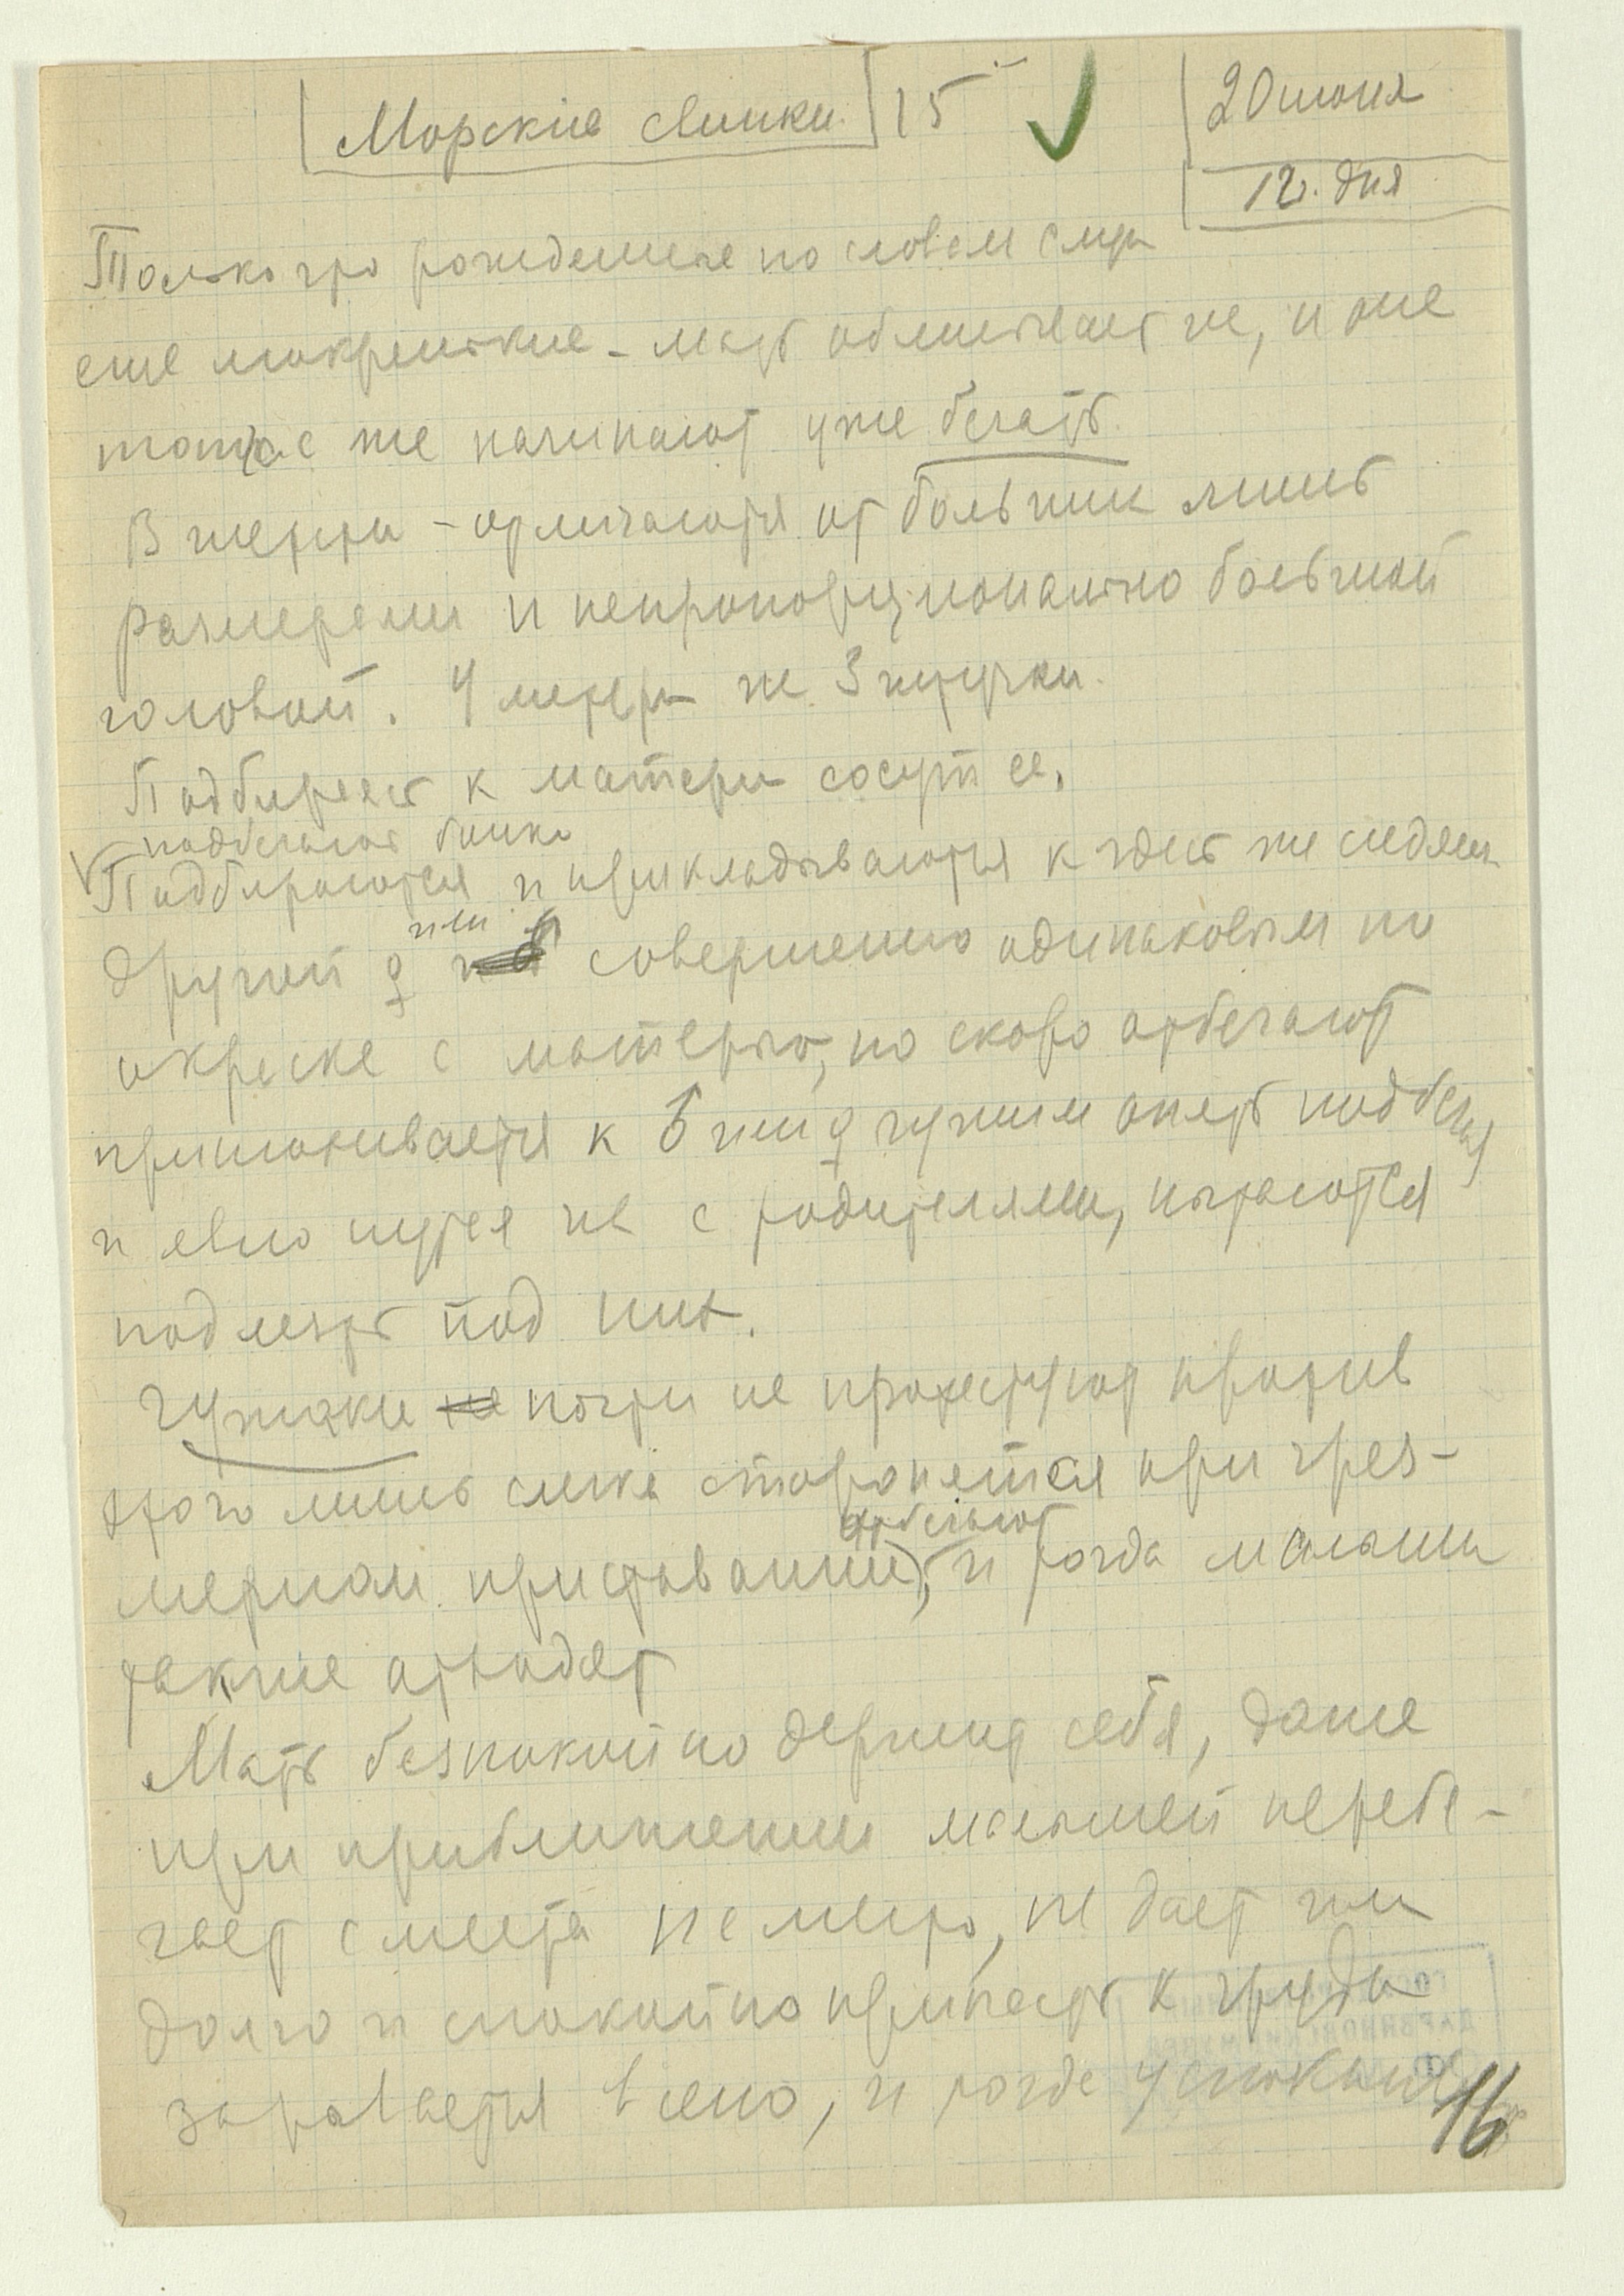 Морские свинки 15 20 июня
12 ч. дня
Только что рожденные по словам
еще мокренькие - мать облизывает их, и они
тотчас же начинают уже бегать.
В шерсти - отличаются от больших лишь
размерами и непропорционально большой
головой. У матери их 3 штучки.
Подбираясь к матери сосут ее.
подбегают близко
Подбираются и прикладываются к здесь же сидящей
другой ♀ или ♂ совершенно одинаковым по
окраске с матерью, но скоро отбегают
прилаживается к ♂ или ♀ чужим опять подбегая
и явно путая их с родителями, пытаются
подлезть под них.
Чужаки не почти не протестуют против
этого лишь слегка сторонятся при чрез-
отбегают
мерном приставании, и тогда малыши
также отходят
Мать беспокойно держит себя, даже
при приближении малышей перебе-
гает с места на место, не дает им
долго и спокойно припасть к груди
зарывается в сено, и когда
16